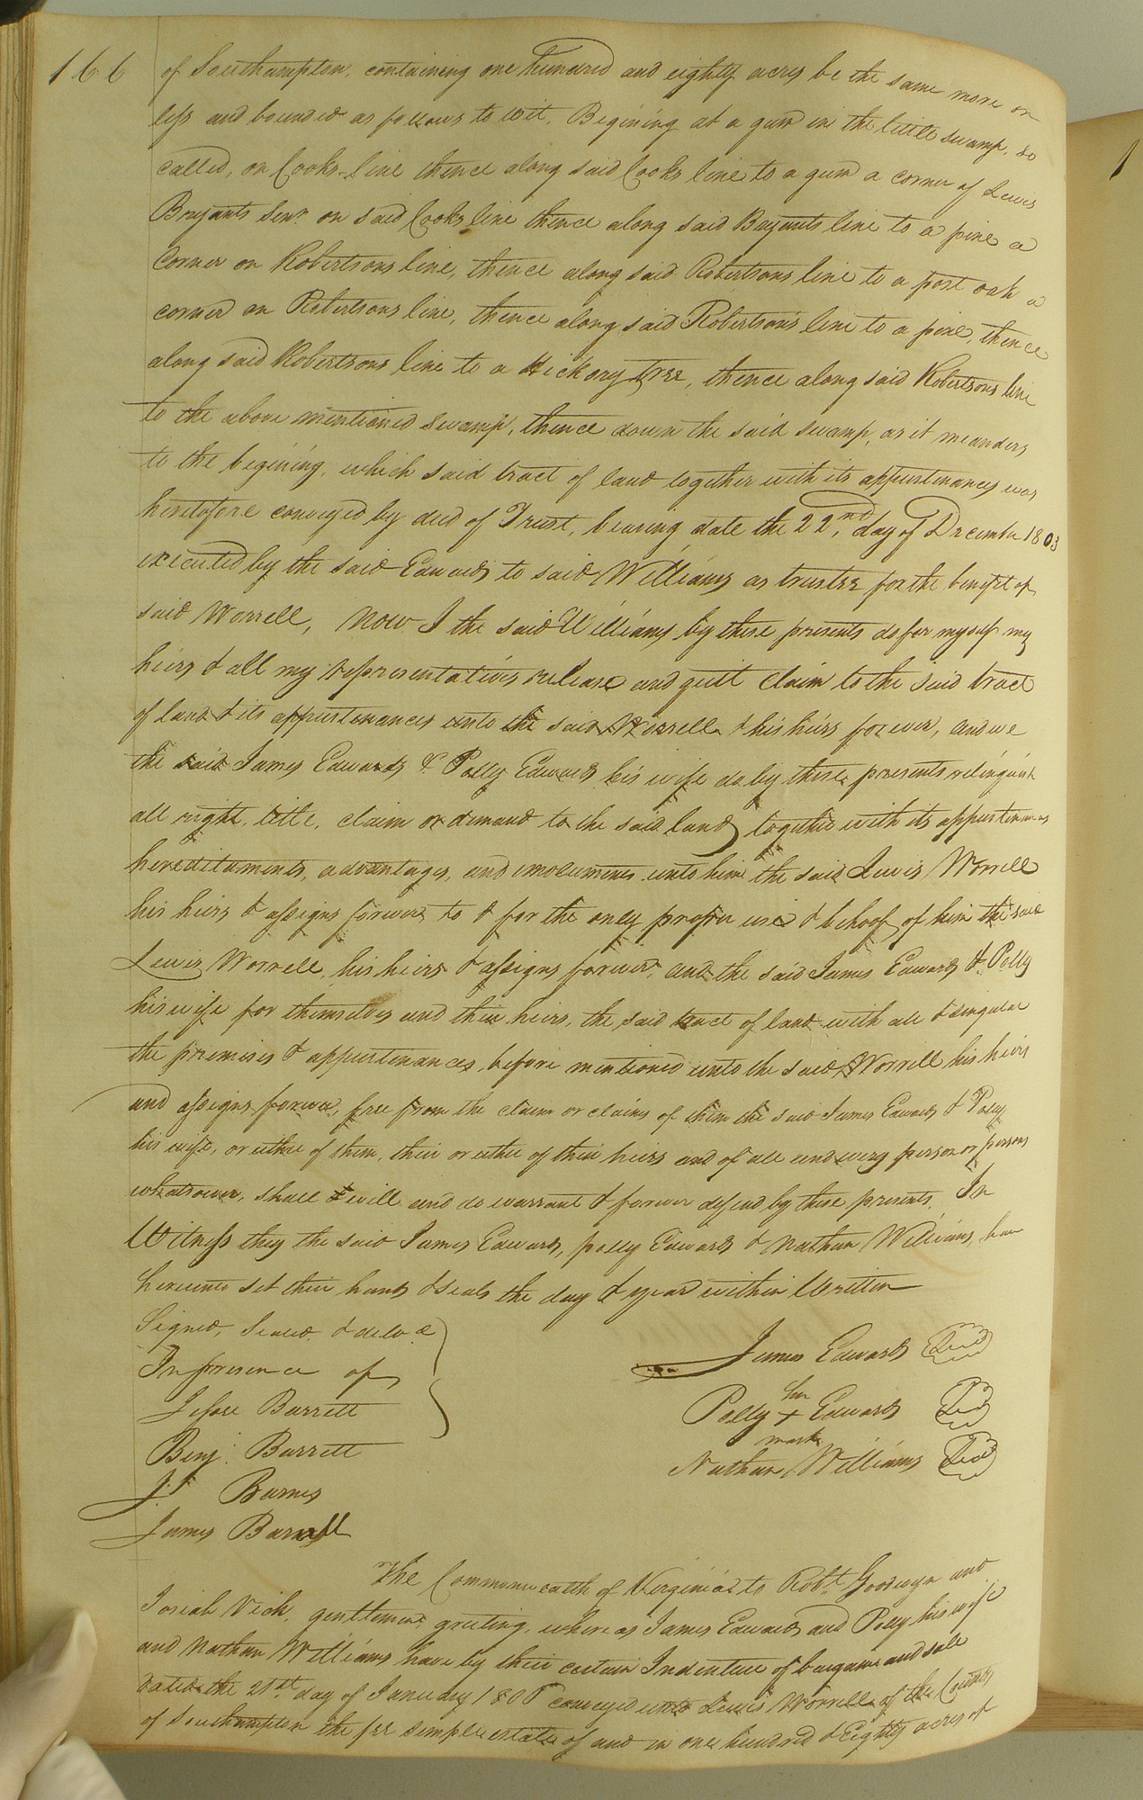 166
of Southampton, containing one hundred and eighty acres be the same more or
less and bounded as follows to wit, Begining at a gum in the little swamp, so
called, on Cooks line thence along said Cooks line to a gum a corner of Lewis
Bryants Senr on said Cooks line thence along said Bryants line to a pine a
Corner on Robertsons line, thence along said Robertsons line to a post oak a
corner on Robertsons line, thence along said Robertson's line to a pine, thence
along said Robertsons line to a Hickory tree, thence along said Robertsons line
to the above mentioned swamp, thence down the said swamp, as it meanders
to the begining, which said tract of land together with its appurtenances was
heretofore conveyed by deed of Trust, bearing date the 22nd, day of December 1803
executed by the said Edwards to said Williams as trustee for the benefit of
said Worrell, Now I the said Williams by these presents do for myself my
heirs & all my representatives release and quit claim to the said tract
of land & its appurtenances unto the said Worrell & his heirs forever, and we
the said James Edwards & Polly Edwards his wife do by these presents relinquish
all right, title, claim or demand to the said land together with its appurtenances
hereditaments, advantages, and emoluments unto him the said Lewis Worrell
his heirs & assigns forever to & for the only proper use & behoof of him the said
Lewis Worrell, his heirs & assigns forever, and the said James Edwards & Polly
his wife for themselves and their heirs, the said tract of land with all & singular
the premises & appurtenances before mentioned unto the said Worrell his heirs
and assigns forever, free from the claim or claims of them the said James Edwards & Polly
his wife, or either of them, their or either of their heirs and of all and every person or persons
whatsoever, shall & will and do warrant & forever defend by these presents. In
Witness they the said James Edwards, Polly Edwards & Nathan Williams, have
hereunto set their hands & seals the day & year within Written
Signed, Sealed & deld
In presence of
James Edwards Seal
Jesse Barrett
her
Polly + Edwards Seal
mark
Benj. Barrett
Nathan Williams Seal
Js Barnes
James Barrett
The Commonwealth of Virginia to Robt Goodwyn and
Josiah Vick, gentlemen, greeting, whereas James Edwards and Polly his wife
and Nathan Williams have by their certain Indenture of bargain and sale
dated the 21st day of January 1806 conveyed unto Lewis Worrell of the County
of Southampton the fee simple estate of and in one hundred & Eighty acres of